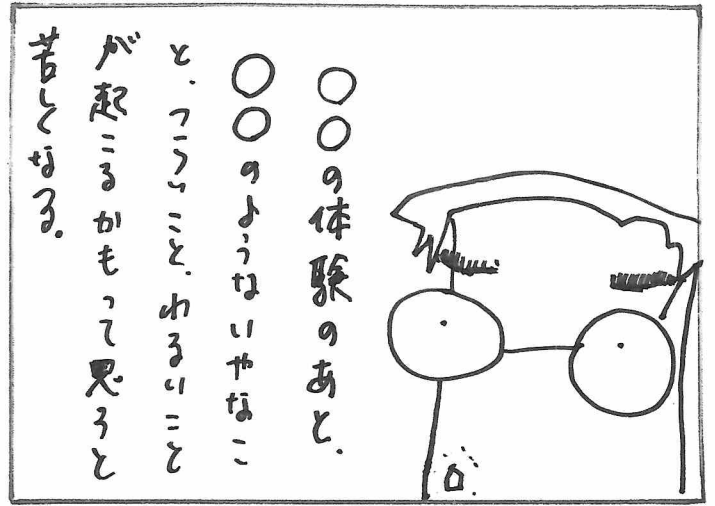 ○○の体験のあと、
○○のようないやなこ
と、つらいこと、わるいこと
が起こるかもって思うと
苦しくなる。